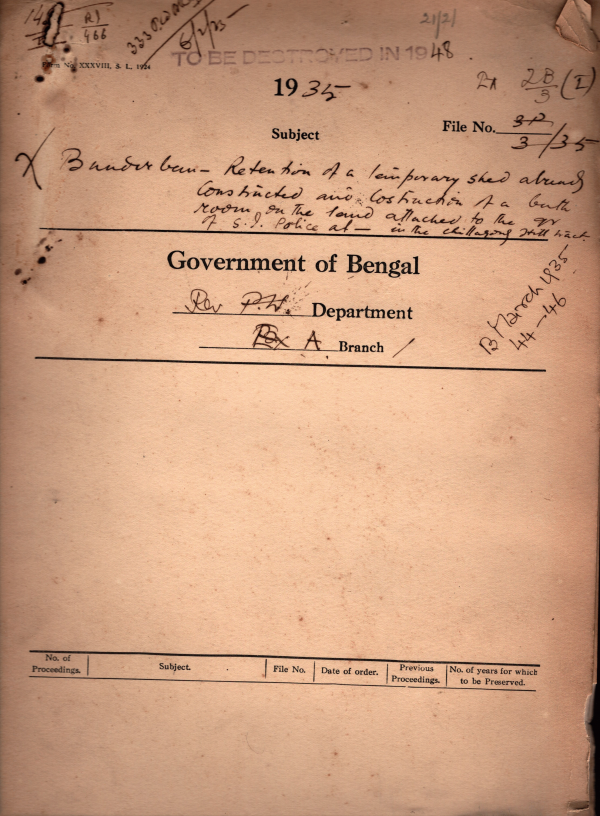 14
RJ
466
333 P.W.
6/2/35
21/2/
TO BE DESTROYED IN 1948
Form No. XXXVIII, S. L., 1924
1935
2A 2B/3 (I)
Subject
File No. 3P
3/35
X Bandarban— Retention of a temporary shed already
constructed and costruction of a bath
room on the land attached to the qr
of S.I. Police at — in the chittagong Hill tract.
Government of Bengal
Rev P.W. Department
A Branch
B March 1935
44-46
No. of Proceedings. Subject. File No. Date of order. Previous Proceedings. No. of years for which to be Preserved.